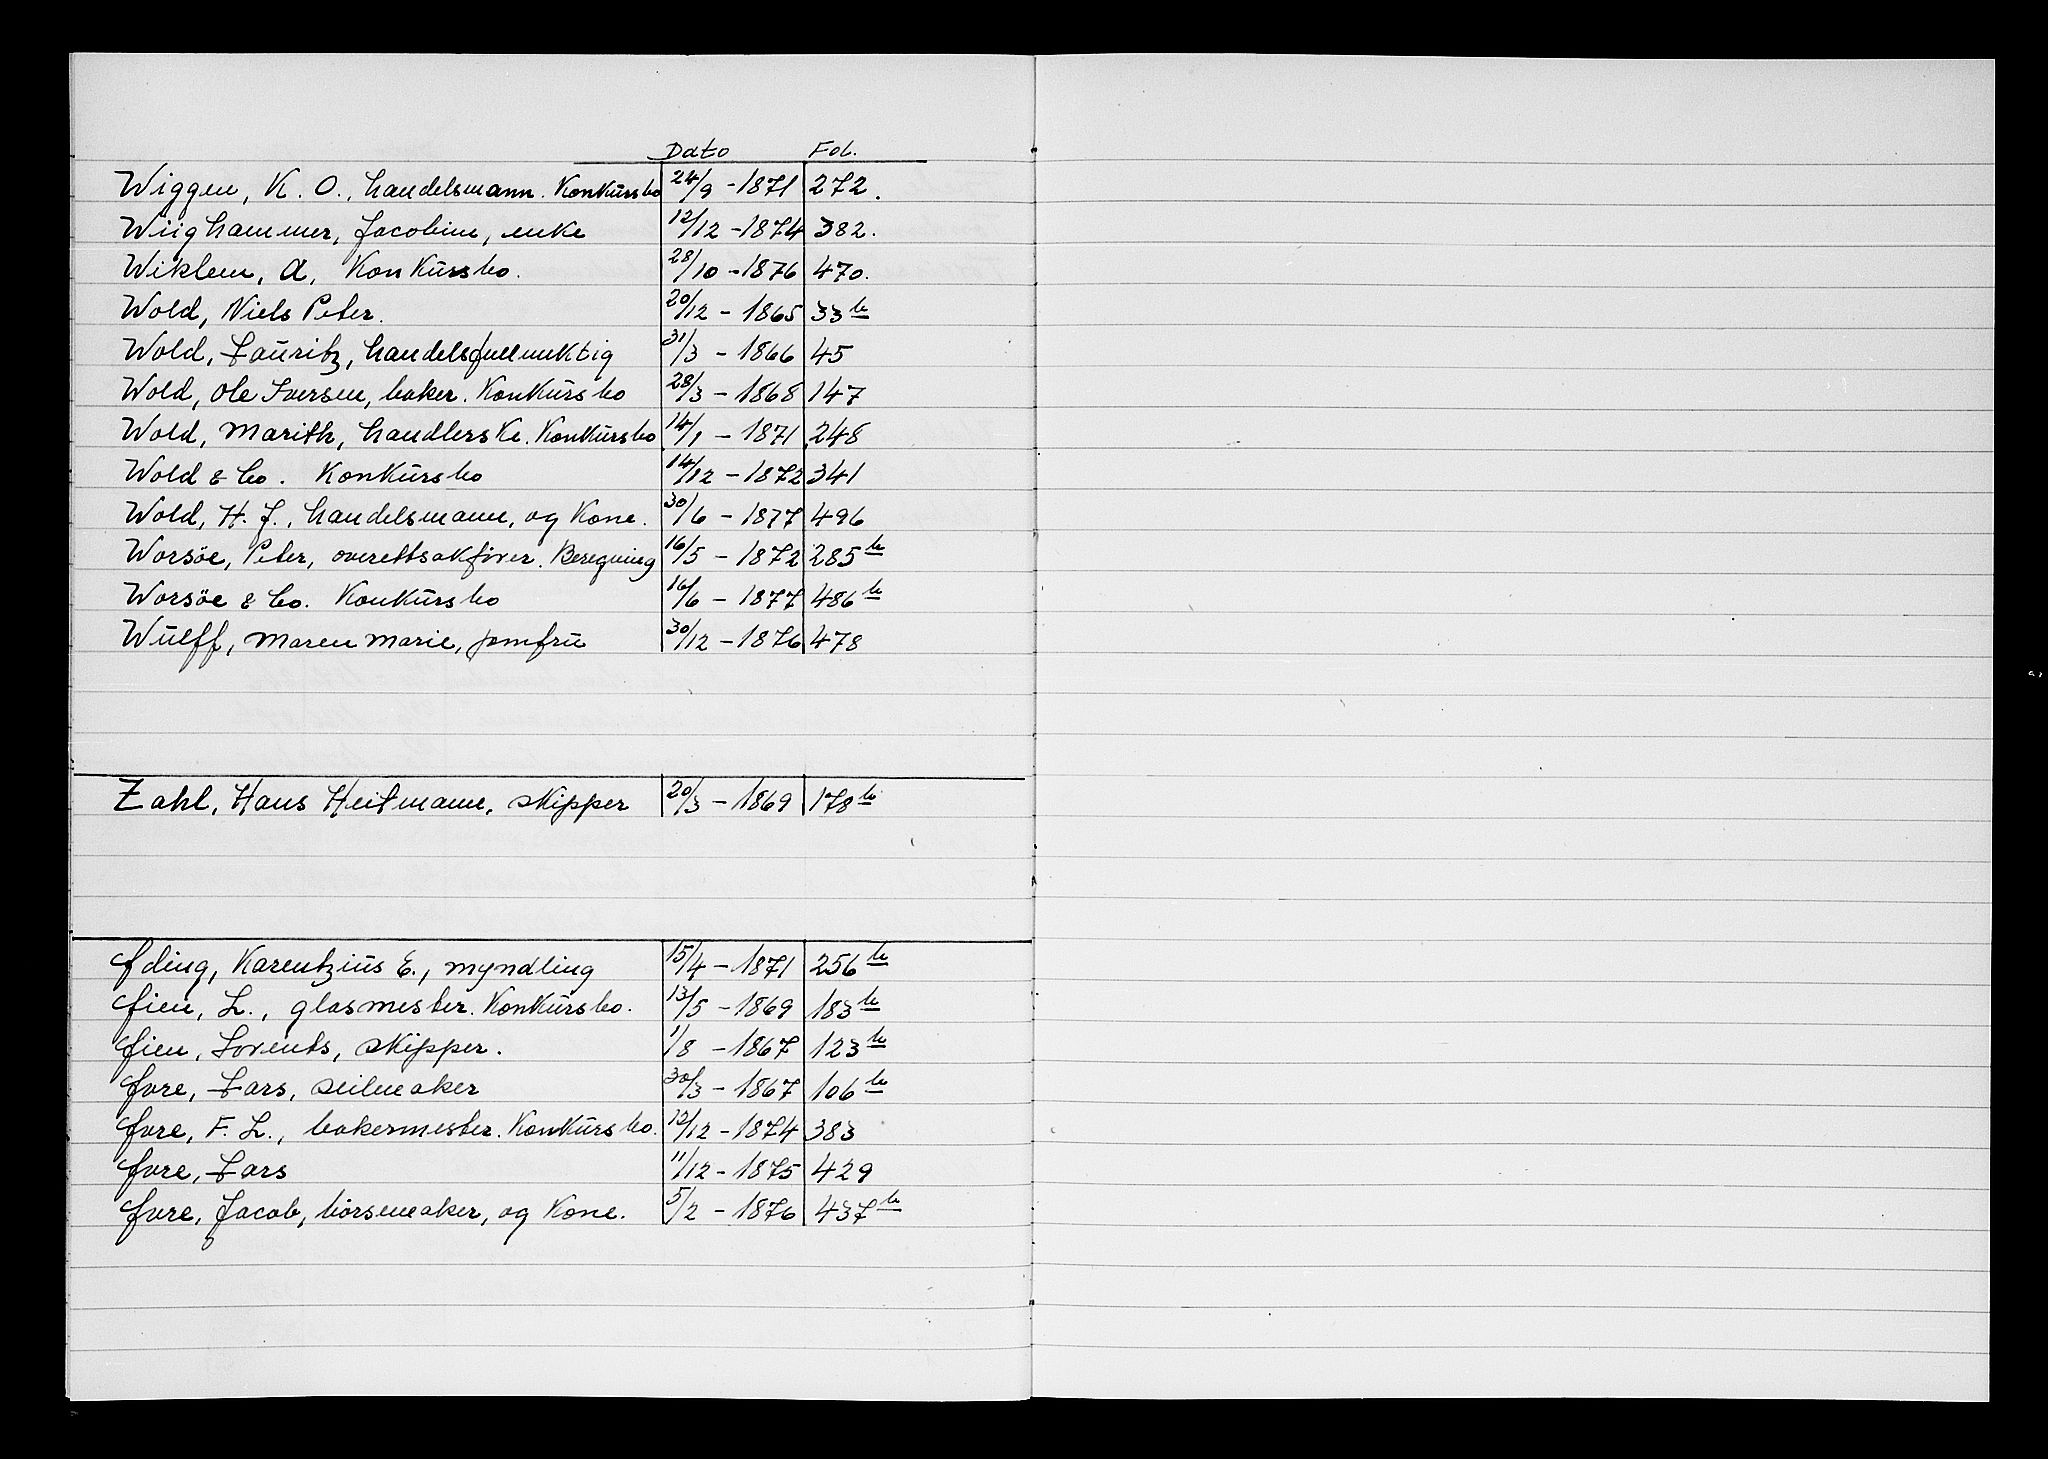 Dato Fol.
Wiggen, K. O., handelsmann. Konkursbo 24/9 - 1871 272.
Wiighammer, Jacobine, enke 12/12 - 1874 382.
Wiklem, A, Konkursbo. 28/10 - 1876 470.
Wold, Niels Peter. 20/12 - 1865 33 b
Wold, Lauritz, handelsfullmektig 31/3 - 1866 45
Wold, Ole Iversen, baker. Konkursbo 28/3 - 1868 147
Wold, Marith, handlerske. Konkursbo 14/1 - 1871 248
Wold & Co. Konkursbo 14/12 - 1872 341
Wold, H. J., handelsmann, og kone. 30/6 - 1877 496
Worsöe, Peter, overettsakförer. Beregning 16/5 - 1872 285 b
Worsöe & Co. Konkursbo 16/6 - 1877 486 b
Wulff, Maren Marie, jomfru 30/12 - 1876 478
Zahl, Hans Heitmann, skipper 20/3 - 1869 178 b
Øding, Karentzius E., myndling 15/4 - 1871 256 b
Øien, L., glasmester. Konkursbo. 13/5 - 1869 183 b
Øien, Lorents, skipper. 1/8 - 1867 123 b
Øvre, Lars, seilmaker 30/3 - 1867 106 b
Øvre, F. L., bakermester. Konkursbo. 12/12 - 1874 383
Øvre, Lars 11/12 - 1875 429
Øvre, Jacob, börsemaker, og kone. 5/2 - 1876 437 b